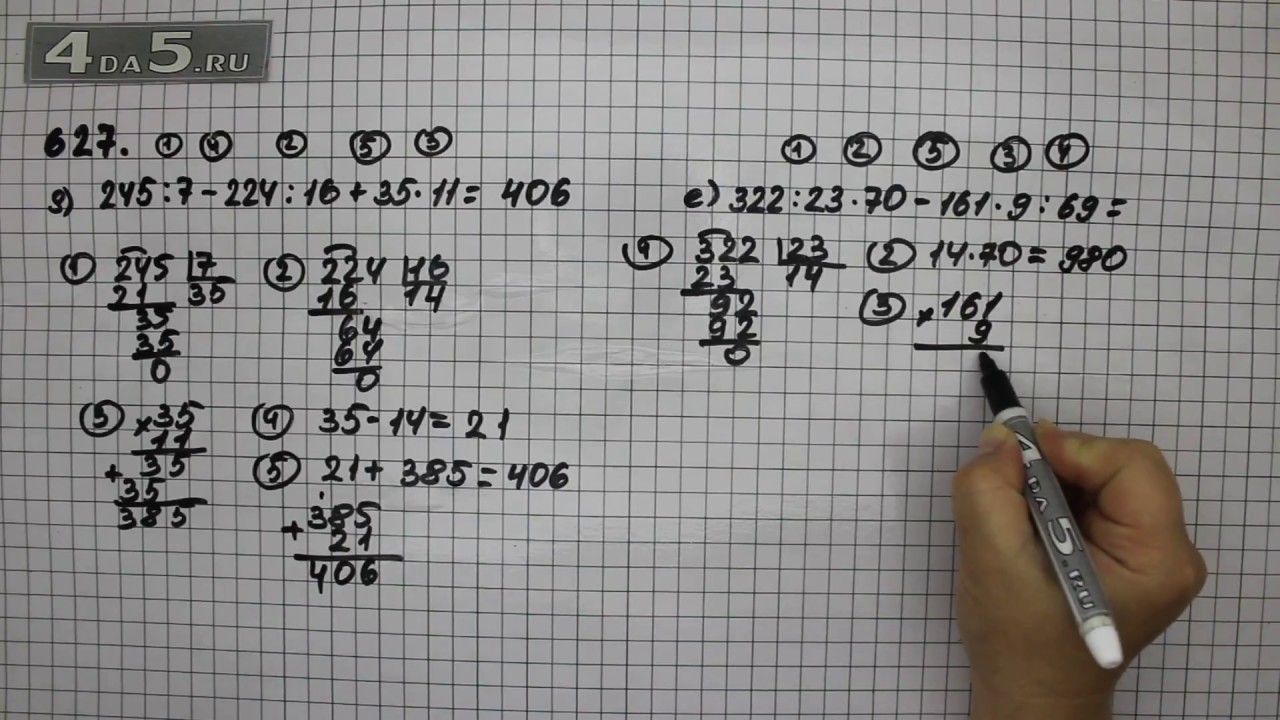 4DA5.RU
627. ① ④ ② ⑤ ③
д) 245:7-224:16+35·11= 406
① 245 7
21 35
35
35
0
② 224 16
16 14
64
64
0
③ ×35
11
+35
35
385
④ 35-14=21
⑤ 21+385=406
1
+385
21
406
① ② ⑤ ③ ④
е) 322:23·70-161·9:69=
① 322 23
23 14
92
92
0
② 14·70=980
③ ×161
9
4DA5.RU